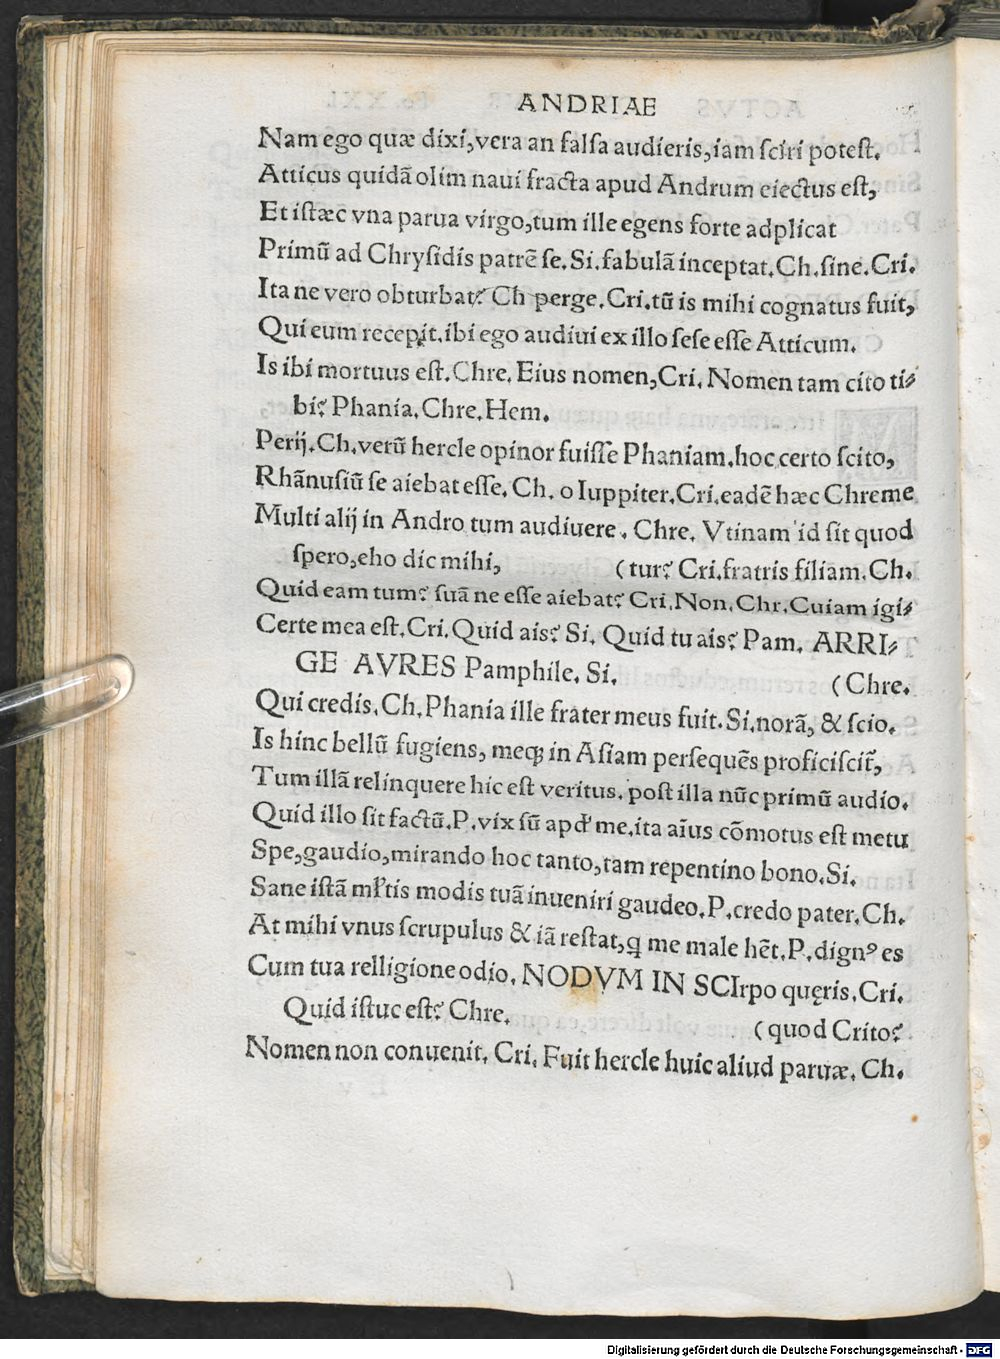 ANDRIAE
Nam ego quæ dixi,vera an falſa audieris,iam ſciri poteſt.
Atticus quidã olim naui fracta apud Andrum eiectus eſt,
Et iſtæc vna parua virgo,tum ille egens forte adplicat
Primũ ad Chryſidis patrẽ ſe.Si.fabulã inceptat.Ch.ſine.Cri.
Ita ne vero obturbat? Ch perge.Cri.tũ is mihi cognatus fuit,
Qui eum recepit.ibi ego audiui ex illo ſeſe eſſe Atticum.
Is ibi mortuus eſt.Chre.Eius nomen,Cri.Nomen tam cito ti⸗
bi? Phania.Chre.Hem.
Perij.Ch.verũ hercle opinor fuiſſe Phaniam.hoc certo ſcito,
Rhãnuſiũ ſe aiebat eſſe.Ch.o Iuppiter.Cri.eadẽ hæc Chreme
Multi alij in Andro tum audiuere.Chre.Vtinam id ſit quod
ſpero,eho dic mihi, (tur? Cri.fratris filiam.Ch.
Quid eam tum? ſuã ne eſſe aiebat? Cri.Non.Chr.Cuiam igi⸗
Certe mea eſt.Cri.Quid ais? Si.Quid tu ais? Pam.ARRI⸗
GE AVRES Pamphile.Si. (Chre.
Qui credis.Ch.Phania ille frater meus fuit.Si.norã,& ſcio.
Is hinc bellũ fugiens, meqꝫ in Aſiam perſequẽs proficiſcit̃,
Tum illã relinquere hic eſt veritus.poſt illa nũc primũ audio.
Quid illo ſit factũ.P.vix ſũ apđ me,ita aĩus cõmotus eſt metu
Spe,gaudio,mirando hoc tanto,tam repentino bono.Si.
Sane iſtã mĺtis modis tuã inueniri gaudeo.P.credo pater.Ch.
At mihi vnus ſcrupulus & iã reſtat,q me male hẽt.P.dignꝰ es
Cum tua relligione odio.NODVM IN SCIrpo quęris.Cri.
Quid iſtuc eſt? Chre. (quod Crito?
Nomen non conuenit.Cri.Fuit hercle huic aliud paruæ.Ch.
Digitalisierung gefördert durch die Deutsche Forschungsgemeinschaft - DFG